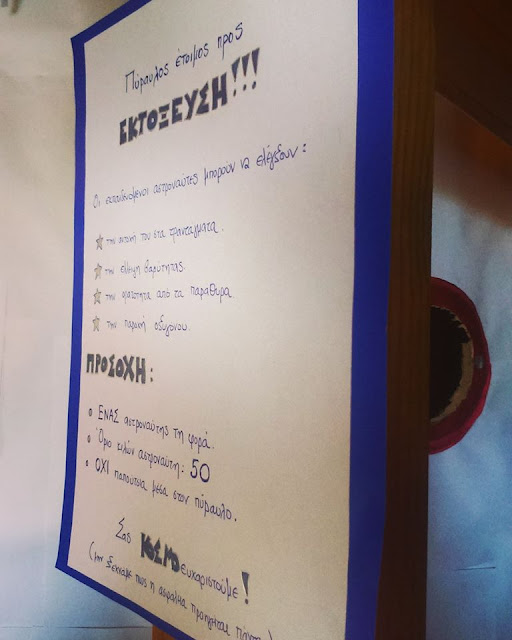 Πύραυλος έτοιμος προς
ΕΚΤΟΞΕΥΣΗ!!!
Οι εκπαιδευόμενοι αστροναύτες μπορούν να ελέγξουν:
την αντοχή του στα τραντάγματα.
την έλλειψη βαρύτητας.
την ορατότητα από τα παράθυρα
την παροχή οξυγόνου.
ΠΡΟΣΟΧΗ:
• ΕΝΑΣ αστροναύτης τη φορά.
• Όριο κιλών αστροναύτη: 50
• ΟΧΙ παπούτσια μέσα στον πύραυλο.
Σας ΚΟΣΜΟευχαριστούμε!
(μην ξεχνάμε πως η ασφάλεια προηγείται πάντα